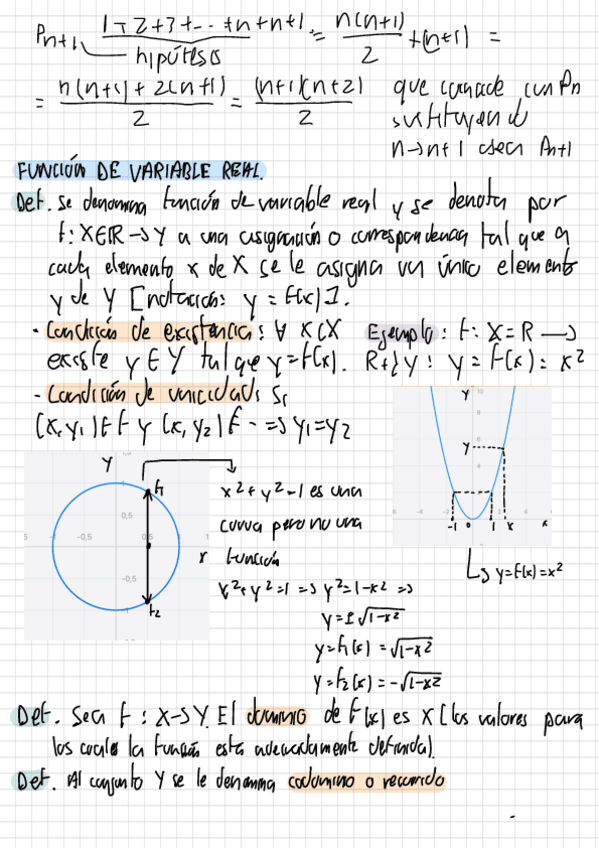 Pn+1 1+2+3+...+n+n+1 = n(n+1)/2 + (n+1) =
hipótesis
= n(n+1)+2(n+1)/2 = (n+1)(n+2)/2 que coincide con Pn
sustituyendo
n→n+1 o sea Pn+1
FUNCIÓN DE VARIABLE REAL.
Def. Se denomina función de variable real y se denota por
f: X∈R → Y a una asignación o correspondencia tal que a
cada elemento x de X se le asigna un único elemento
y de Y [notación: y = f(x)].
- Condición de existencia: ∀ x∈X
existe y ∈ Y tal que y=f(x).
Ejemplo: f: X=R →
R+} y: y = f(x) = x²
- Condición de unicidad: Si
(x,y₁)∈f y (x,y₂)∈ f => y₁=y₂
Y
f₁
0,5
-0,5
0
0,5
x
-0,5
f₂
x²+y²=1 es una
curva pero no una
función
x²+y²=1 => y²=1-x² =>
y=±√1-x²
y=f₁(x) = √1-x²
y=f₂(x) = -√1-x²
10
y
y
-1 0 1 x
x
↳ y=f(x)=x²
Def. Sea f: X→Y. El dominio de f(x) es X (los valores para
los cuales la función esta adecuadamente definida).
Def. Al conjunto Y se le denomina codominio o recorrido